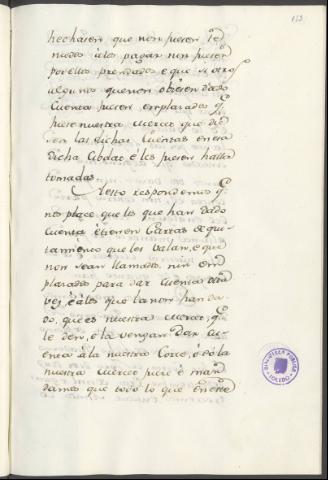 113
hecharen que non fuesen te
nudos à los pagar nin fuesen
por ellos prendados e que si otros
algunos que non obiesen dado
Cuenta fuesen emplazados q.e
fuese nuestra merced que die
sen las dichas Cuentas en esta
dicha Cibdat è les fuesen
tomadas.
A esto respondemos q.e
nos place que los que han dado
Cuenta è tienen Cartas de qui
tamiento que les valan, e que
non sean llamados, nin em
plazados para dar Cuenta otra
vez è à los que la non han da
do, que es nuestra merced q.e
le den, è la vengan dar Cu
enta à la nuestra Corte, è do la
nuestra merced fuere è man
damos que todo lo que en este
BIBLIOTECA PUBLICA
TOLEDO